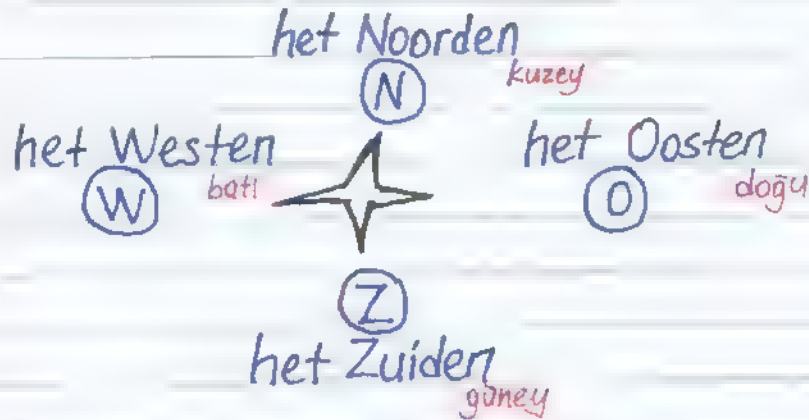 het Noorden
kuzey
N
het Westen
batı
W
het Oosten
doğu
O
Z
het Zuiden
güney